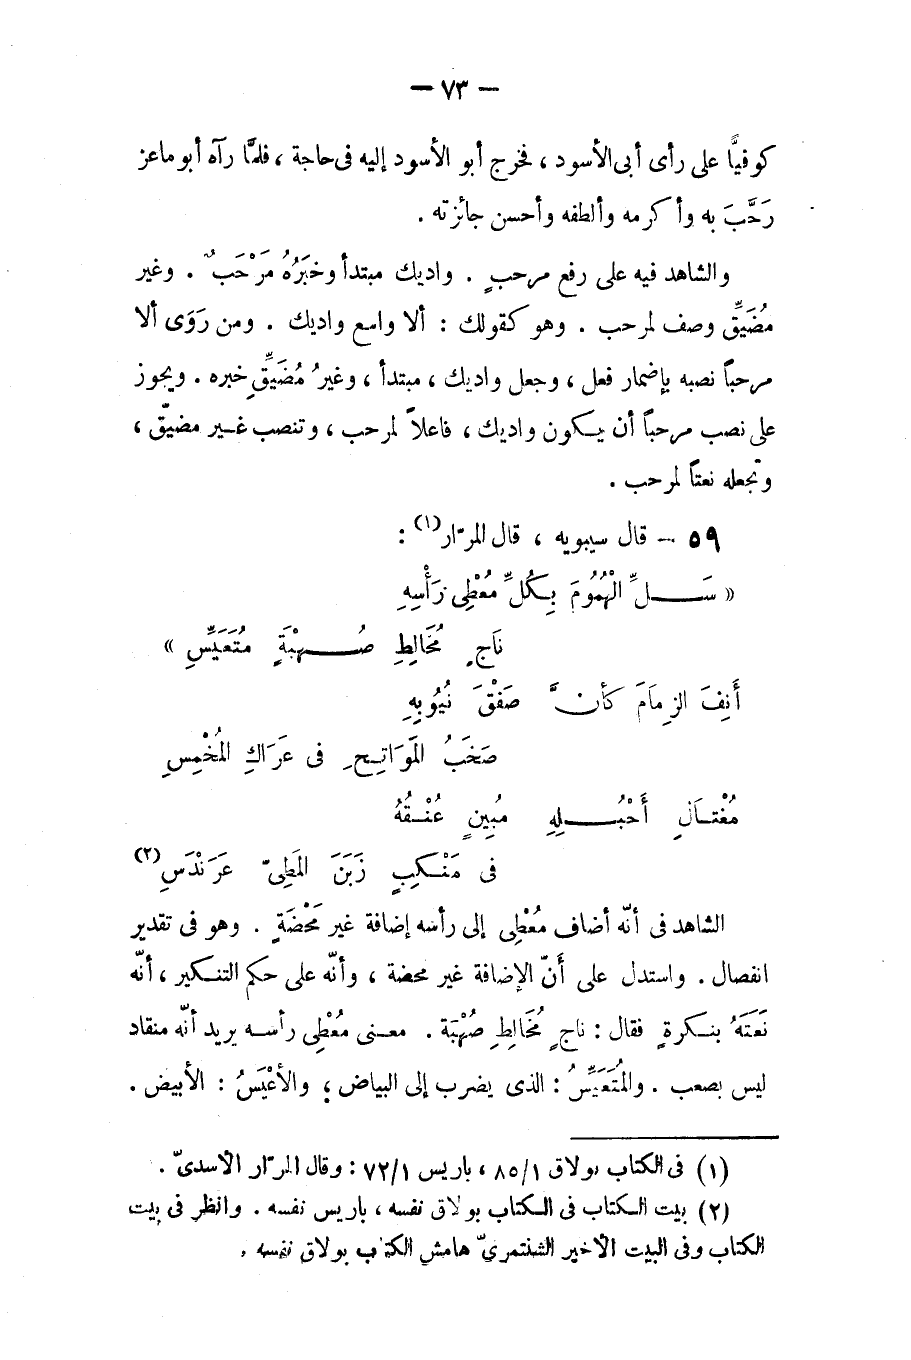 — ٧٣ —
كوفيًّا على رأى أبى الأسود ، فخرج أبو الأسود إليه فى حاجة ، فلمَّا رآه أبو ماعز
رَحَّبَ به وأكرمه وألطفه وأحسن جائزته .
والشاهد فيه على رفع مرحبٍ . واديك مبتدأ وخبَرُهُ مَرْحَبٌ . وغير
مُضَيِّقٍ وصف لمرحب . وهو كقولك : ألا واسع واديك . ومن رَوَى ألا
مرحباً نصبه بإضمار فعل ، وجعل واديك ، مبتدأ ، وغيرُ مُضَيِّقٍ خبره . ويجوز
على نصب مرحباً أن يكون واديك ، فاعلاً لمرحب ، وتنصب غير مضيّق ،
وتجعله نعتاً لمرحب .
٥٩ – قال سيبويه ، قال المرّار(١) :
« سَلِّ الْهُمُومَ بِكُلِّ مُعْطِى رَأْسِهِ
نَاجٍ مُخَالِطِ صُهْبَةٍ مُتَعَيِّسِ »
أَنِفَ الزِمَامَ كَأنَّ صَفْقَ نُيُوبِهِ
صَخَبُ المَوَاتِحِ فى عَرَاكِ المُخْمِسِ
مُغْتالِ أَحْبُلِهِ مُبِينٍ عُنْقُهُ
فى مَنْكِبٍ زَبَنَ المَطِىّ عَرَنْدَسِ(٢)
الشاهد فى أنّه أضاف مُعْطِى إلى رأسه إضافة غير مَحْضَةٍ . وهو فى تقدير
انفصال . واستدل على أَنّ الإضافة غير محضة ، وأنّه على حكم التنكير ، أنّه
نَعَتَهُ بنكرةٍ فقال : ناجٍ مُخَالِطِ صُهْبَة . معنى مُعْطِى رأسه يريد أنّه منقاد
ليس بصعب . والمُتَعَيِّسُ : الذى يضرب إلى البياض ؛ والأعْيَسُ : الأبيض .
(١) فى الكتاب بولاق ٨٥/١ ، باريس ٧٢/١ : وقال المرّار الأسدىّ .
(٢) بيت الكتاب فى الكتاب بولاق نفسه ، باريس نفسه . وانظر فى بيت
الكتاب وفى البيت الأخير الشنتمرىّ هامش الكتاب بولاق نفسه .